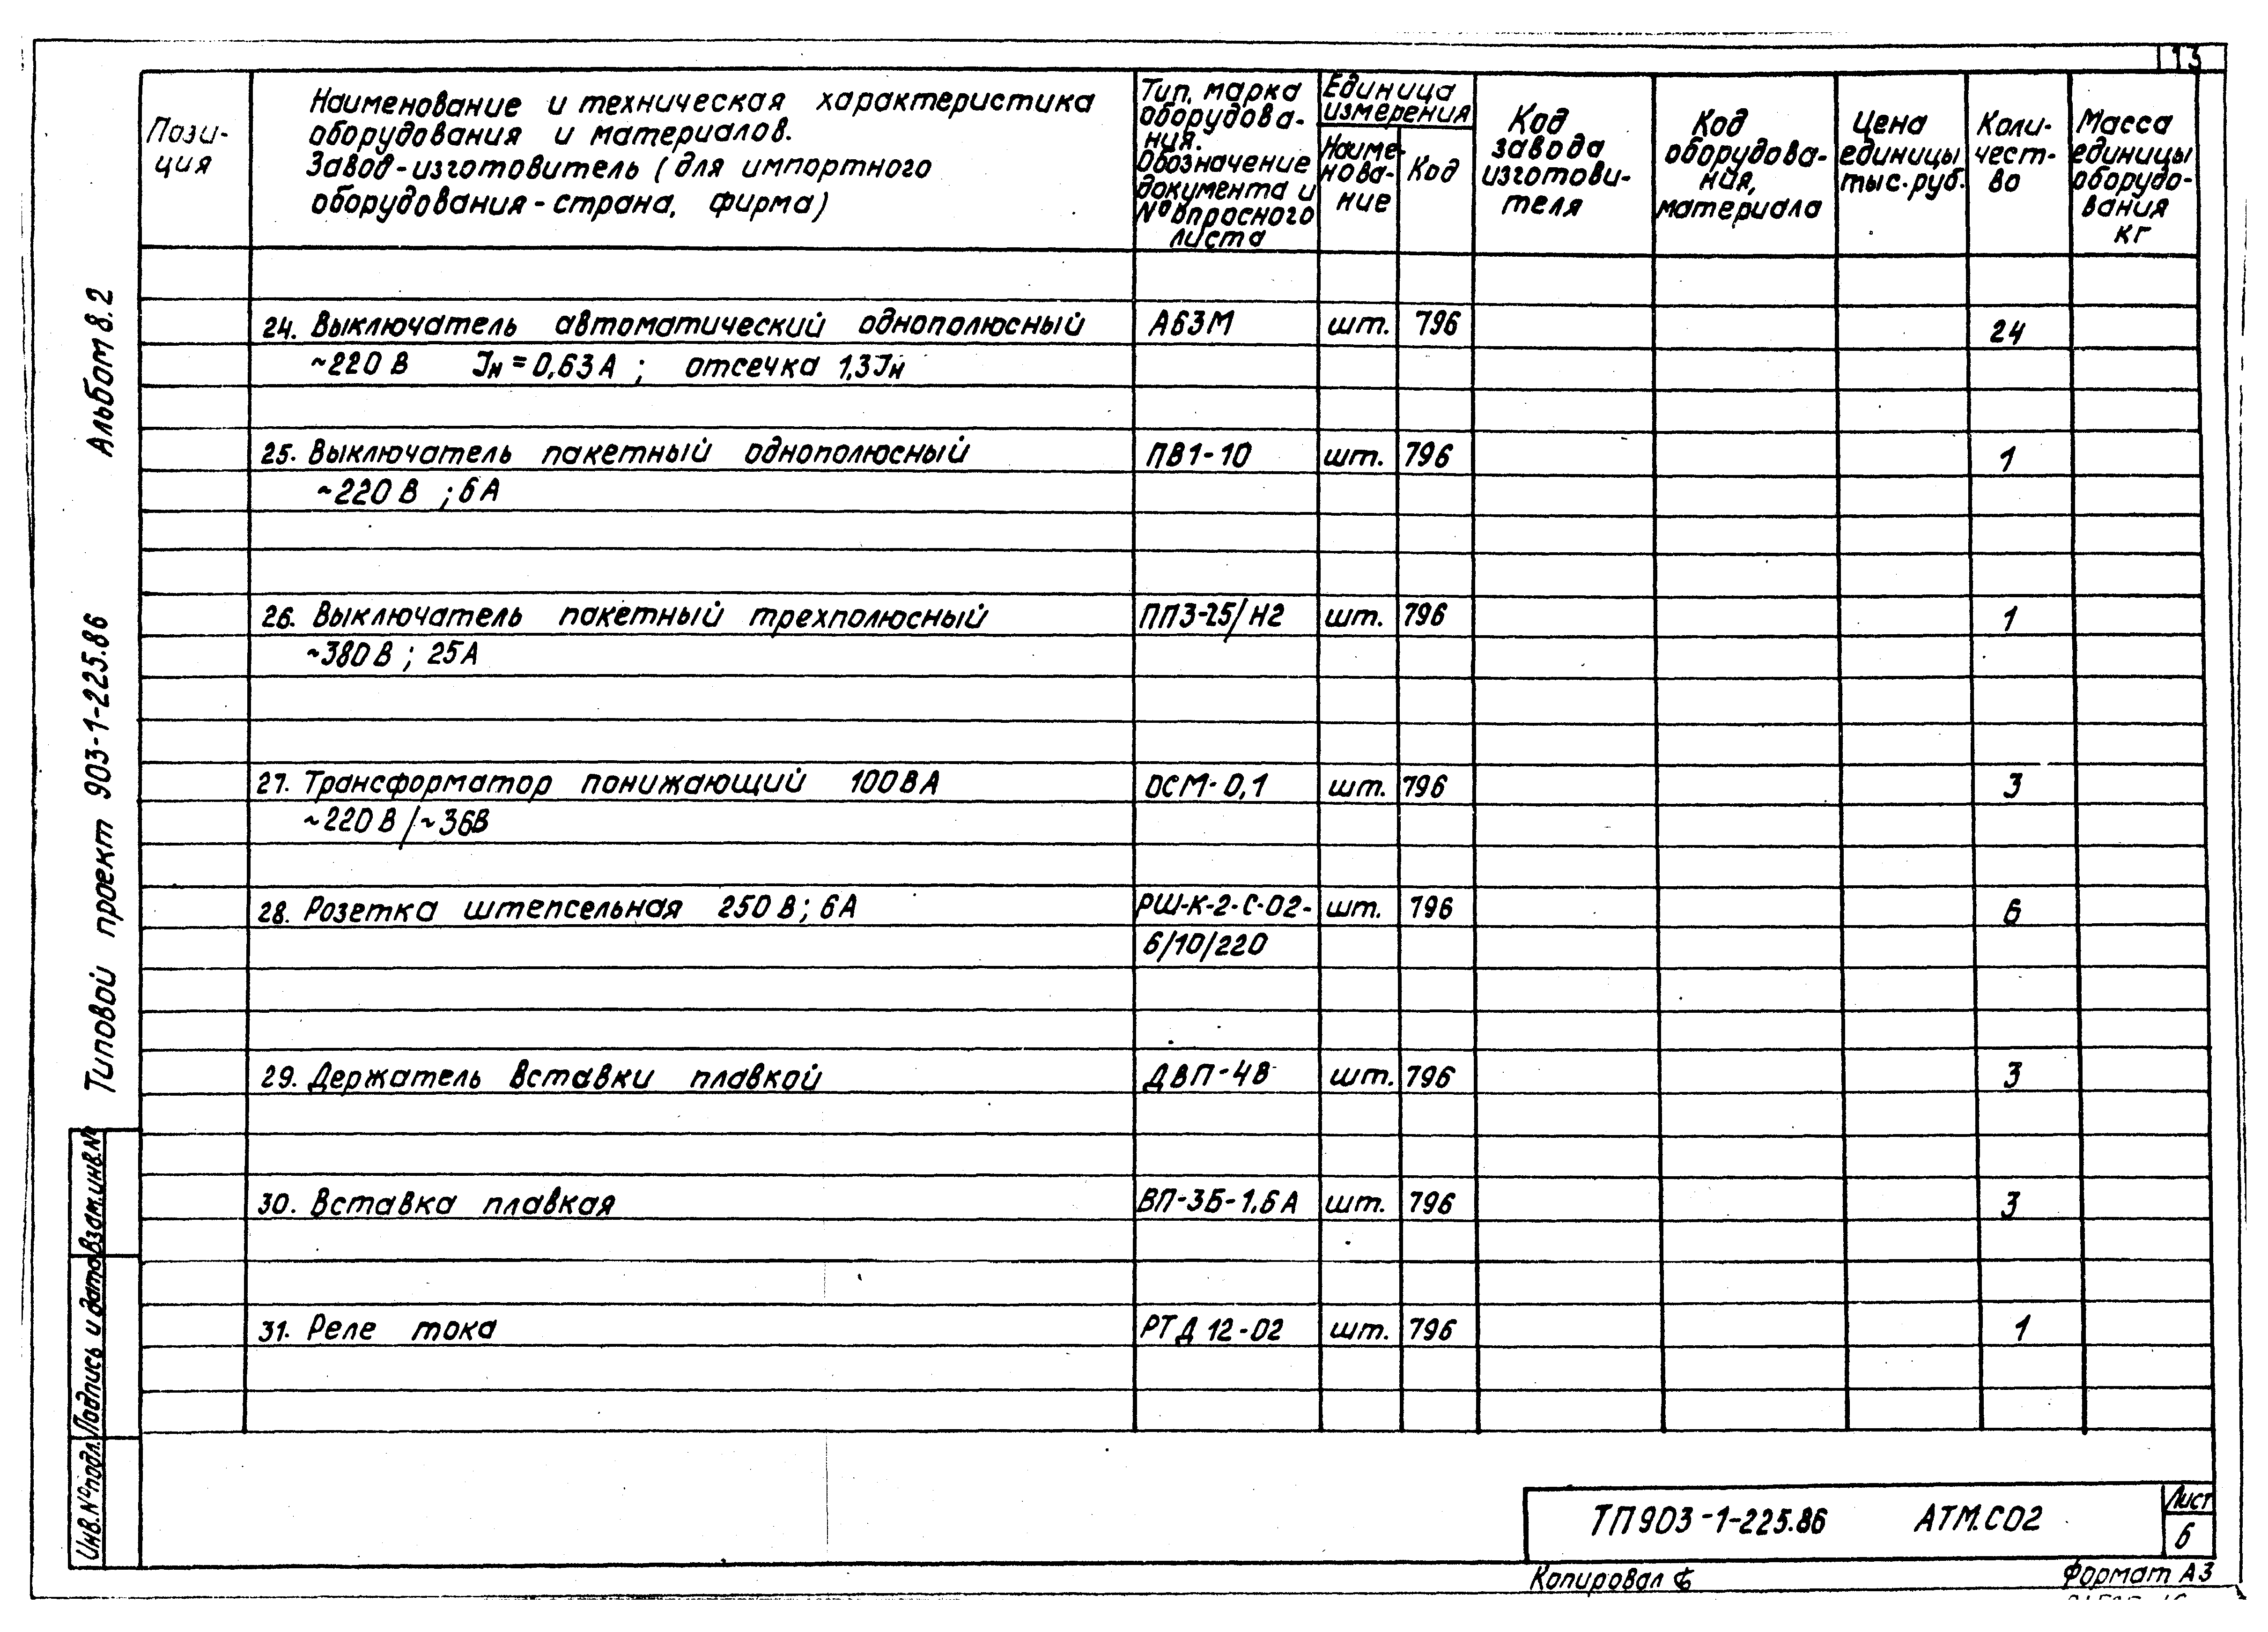 13
Пози-
ция
Наименование и техническая характеристика
оборудования и материалов.
Завод-изготовитель (для импортного
оборудования-страна, фирма)
Тип, марка
оборудова-
ния.
Обозначение
документа и
№ опросного
листа
Единица
измерения
Наиме-
нова-
ние
Код
Код
завода
изготови-
теля
Код
оборудова-
ния,
материала
Цена
единицы
тыс.руб.
Коли-
чест-
во
Масса
единицы
оборудо-
вания
кг
24. Выключатель автоматический однополюсный А63М шт. 796 24
~220 В Iн = 0,63 А ; отсечка 1,3 Iн
25. Выключатель пакетный однополюсный ПВ1-10 шт. 796 1
~220 В ; 6 А
26. Выключатель пакетный трехполюсный ПП3-25/Н2 шт. 796 1
~380 В ; 25 А
27. Трансформатор понижающий 100 ВА ОСМ-0,1 шт. 796 3
~220 В / ~36В
28. Розетка штепсельная 250 В; 6А РШ-К-2-С-02- шт. 796 6
6/10/220
29. Держатель вставки плавкой ДВП-4В шт. 796 3
30. Вставка плавкая ВП-3Б-1.6 А шт. 796 3
31. Реле тока РТД 12-02 шт. 796 1
Альбом 8.2
Типовой проект 903-1-225.86
Взам.инв.№
Подпись и дата
Инв.№ подл.
ТП 903-1-225.86 АТМ.СО2
Лист
6
Копировал
Формат А3